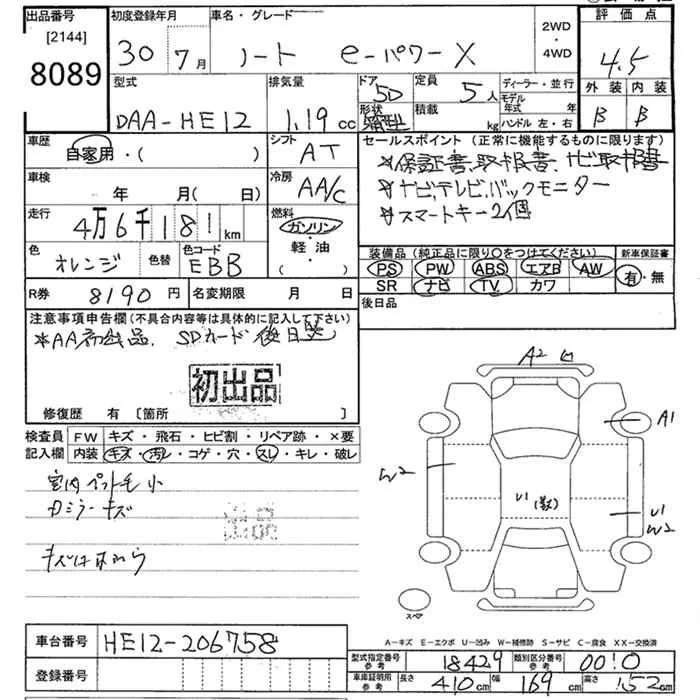 出品番号
[2144]
8089
初度登録年月
30 7月
車名・グレード
ノート e-パワーX
2WD
・
4WD
評価点
4.5
外装 内装
B B
型式
DAA-HE12
排気量
1.19 cc
ドア
5D
形状
定員
5人
積載
kg
ディーラー・並行
モデル年式 年
ハンドル 左・右
車歴
自家用・( )
シフト
AT
車検
年 月( )
冷房
AA/C
走行
4万6千181km
燃料
ガソリン
・
軽・油
・
( )
色
オレンジ
色替
色コード
EBB
R券 8190円
名変期限 月 日
セールスポイント(正常に機能するものに限ります)
*保証書、取報書、ナビ取報書
*ナビ、テレビ、バックモニター
*スマートキー2個
装備品(純正品に限り〇をつけてください)
新車保証書
PS PW ABS エアB AW
有・無
SR ナビ TV カワ
後日品
注意事項申告欄(不具合内容等は具体的に記入して下さい)
*AA初出品、SDカード後日
初出品
修復歴 有 [箇所 ]
検査員記入欄
FW キズ・飛石・ヒビ割・リペア跡・×要
内装 キズ・汚レ・コゲ・穴・スレ・キレ・破レ
室内ペット毛小
Dミラーキズ
A2
A1
W2
U1
U1
W2
スペア
A-キズ E-エクボ U-凹み W-補修跡 S-サビ C-腐食 XX-交換済
車台番号 HE12-206758
登録番号
型式指定番号 参考 18429
類別区分番号 参考 0010
車庫証明用 参考 長さ 410cm 幅 169cm 高さ 152cm